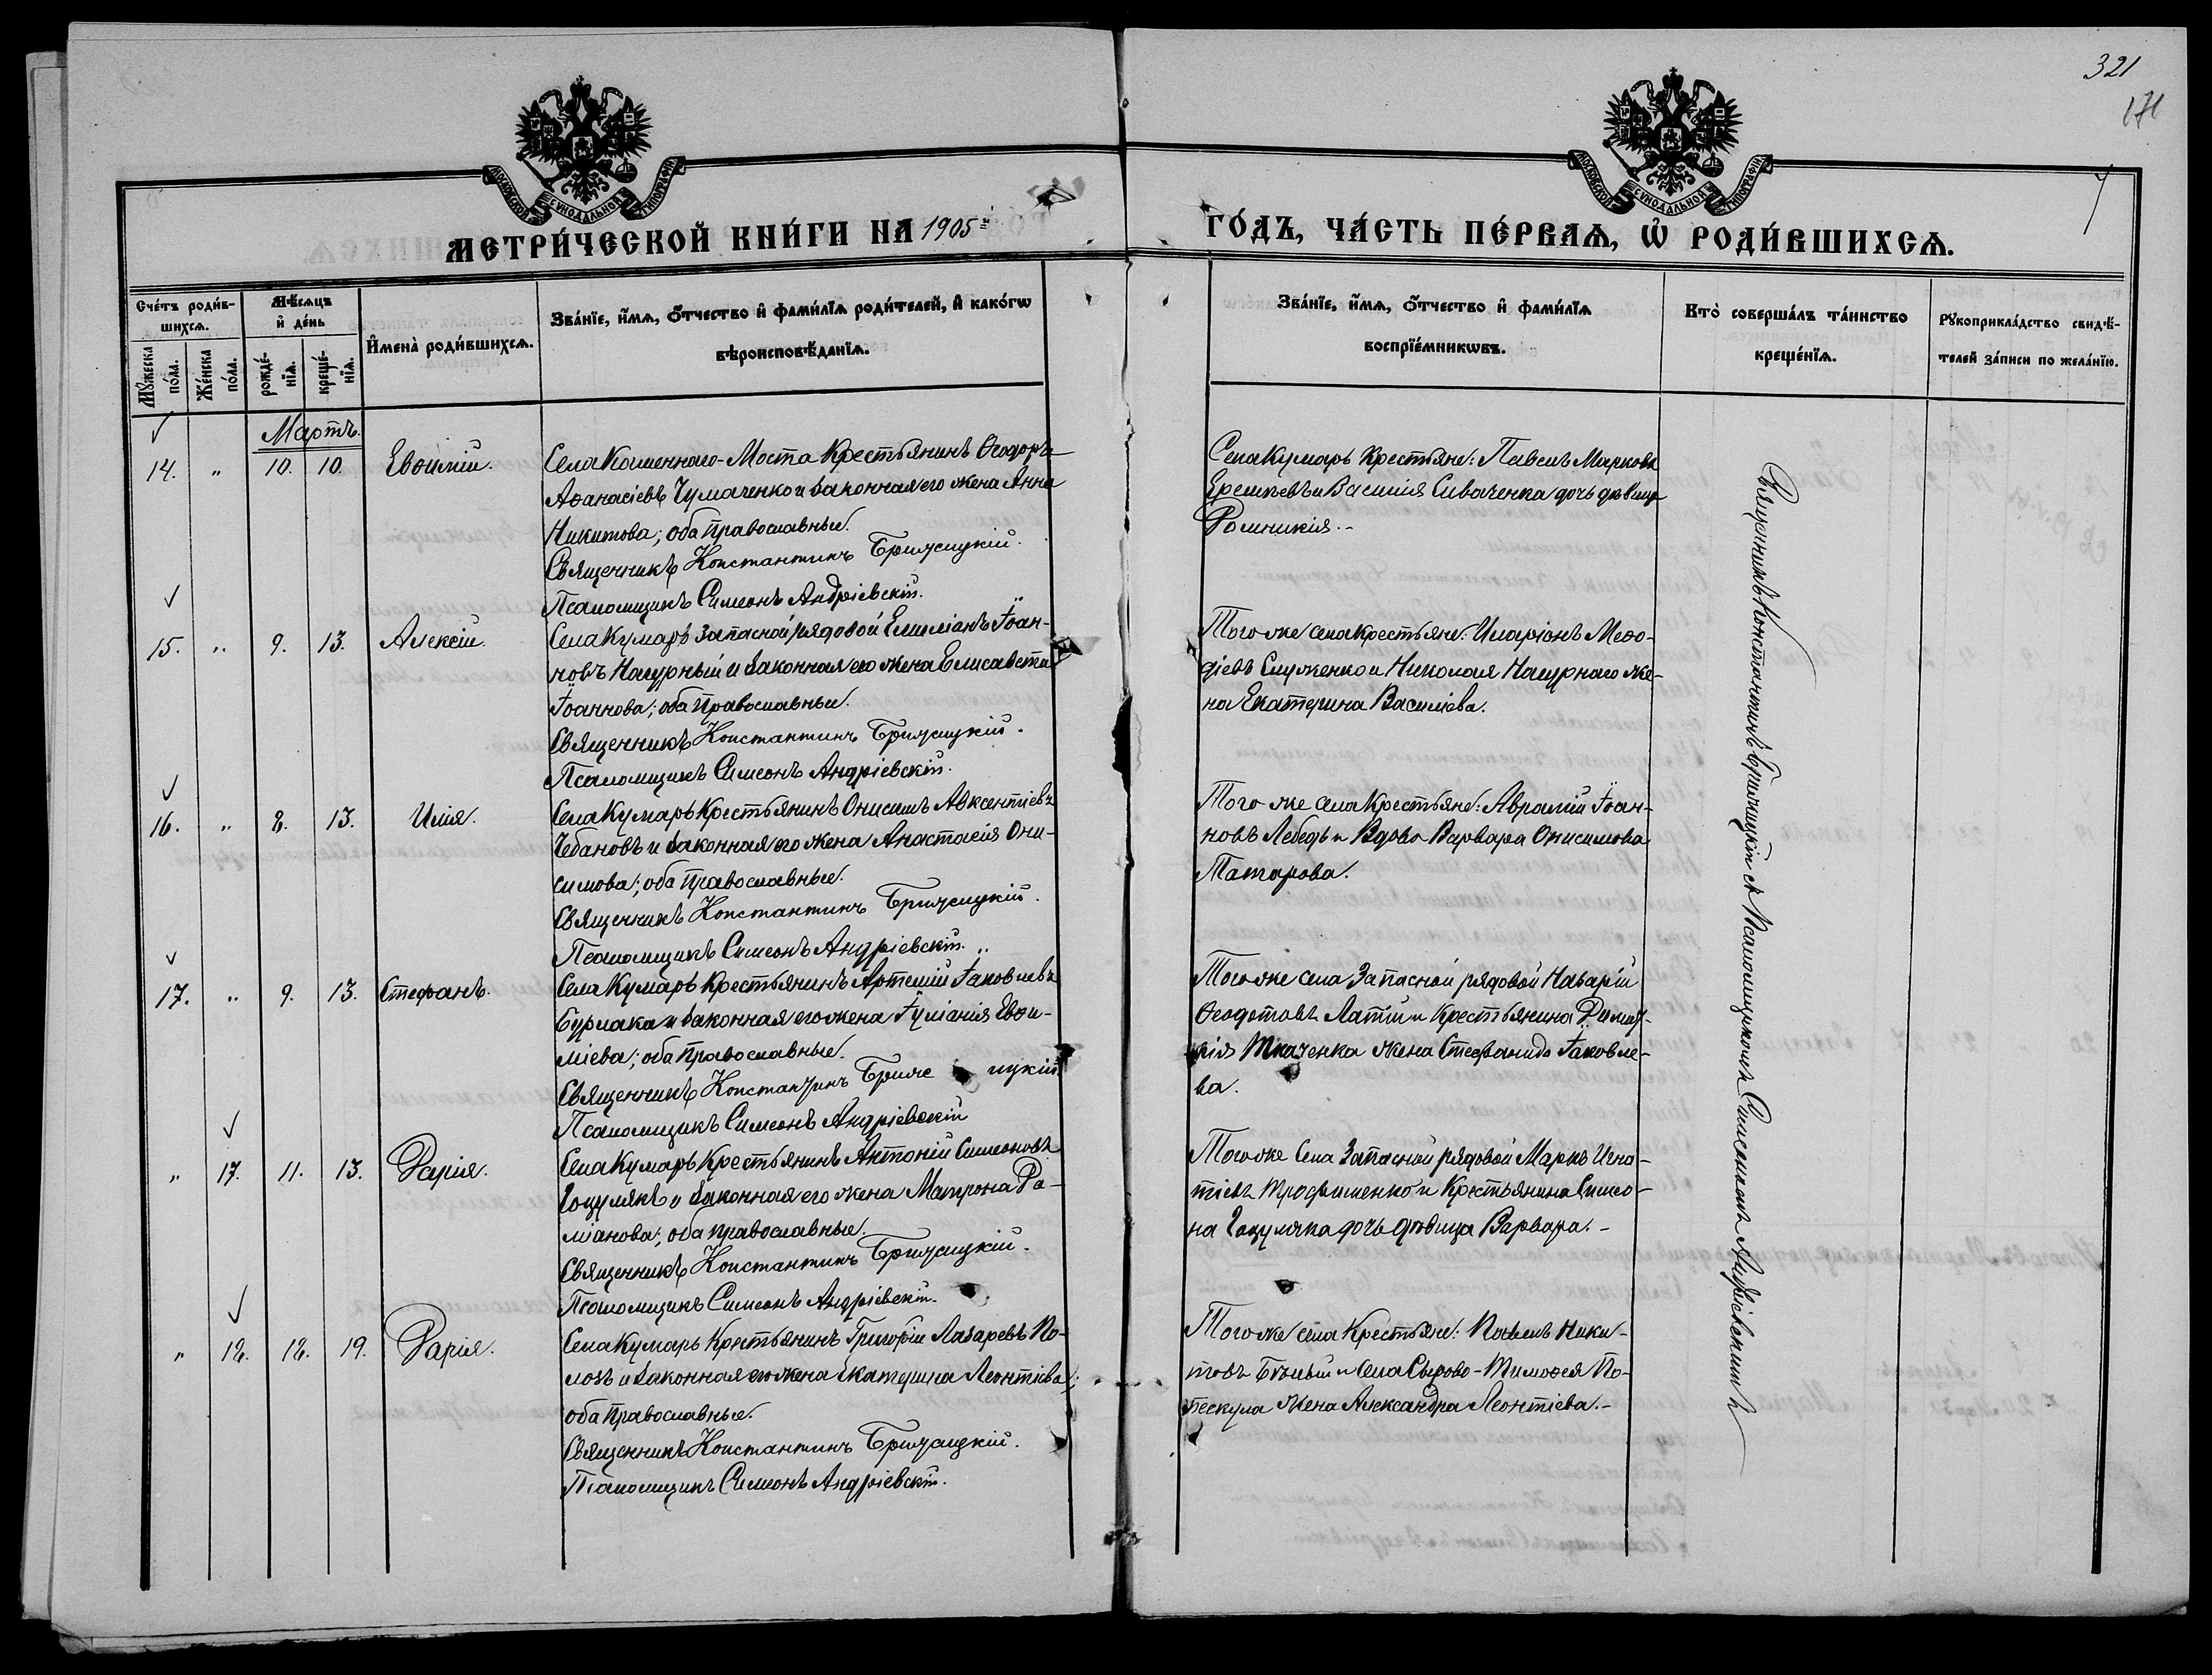 321
171
МОСКОВСКОЙ СѴНОДАЛЬНОЙ ТИПОГРАФІИ
МОСКОВСКОЙ СѴНОДАЛЬНОЙ ТИПОГРАФІИ
МЕТРИ́ЧЕСКОЙ КНИ́ГИ НА 1905й ГО́ДЪ, ЧА́СТЬ ПЕ́РВАѦ, Ѽ РОДИ́ВШИХСѦ.
Сче́тъ роди́в-
шихсѧ.
Мꙋ́жеска по́ла.
Же́нска по́ла.
Мѣ́сѧцъ
и҆ де́нь
рожде́-
нїѧ.
креще́-
нїѧ.
И҆мена̀ роди́вшихсѧ.
Зва́нїе, и҆́мѧ, ѻ҆́тчество и҆ фами́лїѧ роди́телей, и҆ како́гѡ
вѣроисповѣ́данїѧ.
Зва́нїе, и҆́мѧ, ѻ҆́тчество и҆ фами́лїѧ
воспрїе́мникѡвъ.
Кто̀ соверша́лъ та́инство
креще́нїѧ.
Рꙋкоприкла́дство свидѣ́-
телей за́писи по жела́нїю.
Мартъ.
14. „ 10. 10. Евѳимій.
Села Каменнаго-Моста Крестьянинъ Ѳеодоръ
Аѳанасіевъ Чумаченко и законная его жена Анна
Никитова; оба православные.
Священникъ Константинъ Брижицкій.
Псаломщикъ Симеонъ Андріевскій.
Села Кумаръ Крестьяне: Павелъ Марковъ
и Василія Сиваченка дочь дѣвица
15. „ 9. 13. Алексій.
Села Кумаръ запасной рядовой Емиліанъ Іоан-
новъ Нагурный и законная его жена Елисавета
Іоаннова; оба православные.
Священникъ Константинъ Брижицкій.
Псаломщикъ Симеонъ Андріевскій.
Того же села крестьяне: Иларіонъ Меѳо-
діевъ Служенко и Николая Нагурнаго же-
на Екатерина Василіева.
16. „ 8. 13. Илія.
Села Кумаръ Крестьянинъ Онисимъ Авксентіевъ
Чебановъ и законная его жена Анастасія Они-
симова; оба православные.
Священникъ Константинъ Брижицкій.
Псаломщикъ Симеонъ Андріевскій.
Того же села Крестьяне: Аврамій Іоан-
новъ Лебедь и Вдова Варвара Онисимова
Татарова.
17. „ 9. 13. Стефанъ.
Села Кумаръ Крестьянинъ Артемій Іаковлевъ
Бурлака и законная его жена Іуліанія Евѳи-
міева; оба православные.
Священникъ Константинъ Брижицкій
Псаломщикъ Симеонъ Андріевскій
Того же села Запасной рядовой Назарій
Ѳеодотовъ Латій и Крестьянина Димит-
рія Ткаченка жена Стефанида Іаковле-
ва.
„ 17. 11. 13. Дарія.
Села Кумаръ Крестьянинъ Антоній Симеоновъ
Гоцулякъ и законная его жена Матрона Да-
міанова; оба православные.
Священникъ Константинъ Брижицкій.
Псаломщикъ Симеонъ Андріевскій.
Того же Села Запасной рядовой Маркъ Игна-
тіевъ Трофименко и Крестьянина Симео-
на Гоцуляка дочь дѣвица Варвара.-
„ 18. 18. 19. Дарія.
Села Кумаръ Крестьянинъ Григорій Лазаревъ По-
лозъ и законная его жена Екатерина Леонтіева;
оба православные.
Священникъ Константинъ Брижицкій.
Псаломщикъ Симеонъ Андріевскій.
Того же села Крестьяне: Павелъ Ники-
товъ Бѣлый и Села Сырово-Тимоѳея По-
жена Александра Леонтіева.-
Священникъ Константинъ Брижицкій съ Псаломщикомъ Симеономъ Андріевскимъ